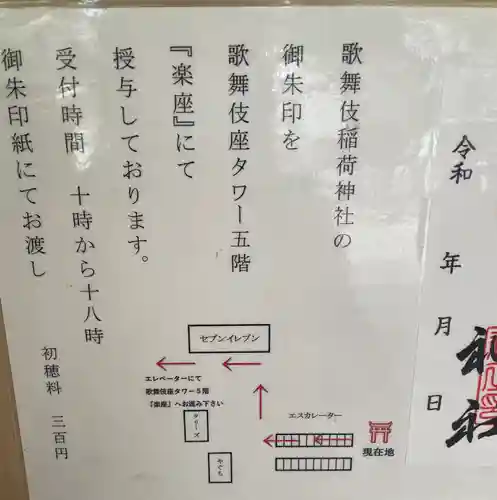 歌舞伎稲荷神社の
御朱印を
歌舞伎座タワー五階
『楽座』にて
授与しております。
受付時間 十時から十八時
御朱印紙にてお渡し
初穂料 三百円
セブンイレブン
エレベーターにて
歌舞伎座タワー5階
『楽座』へお進み下さい
やぐら
エスカレーター
現在地
令和 年 月 日